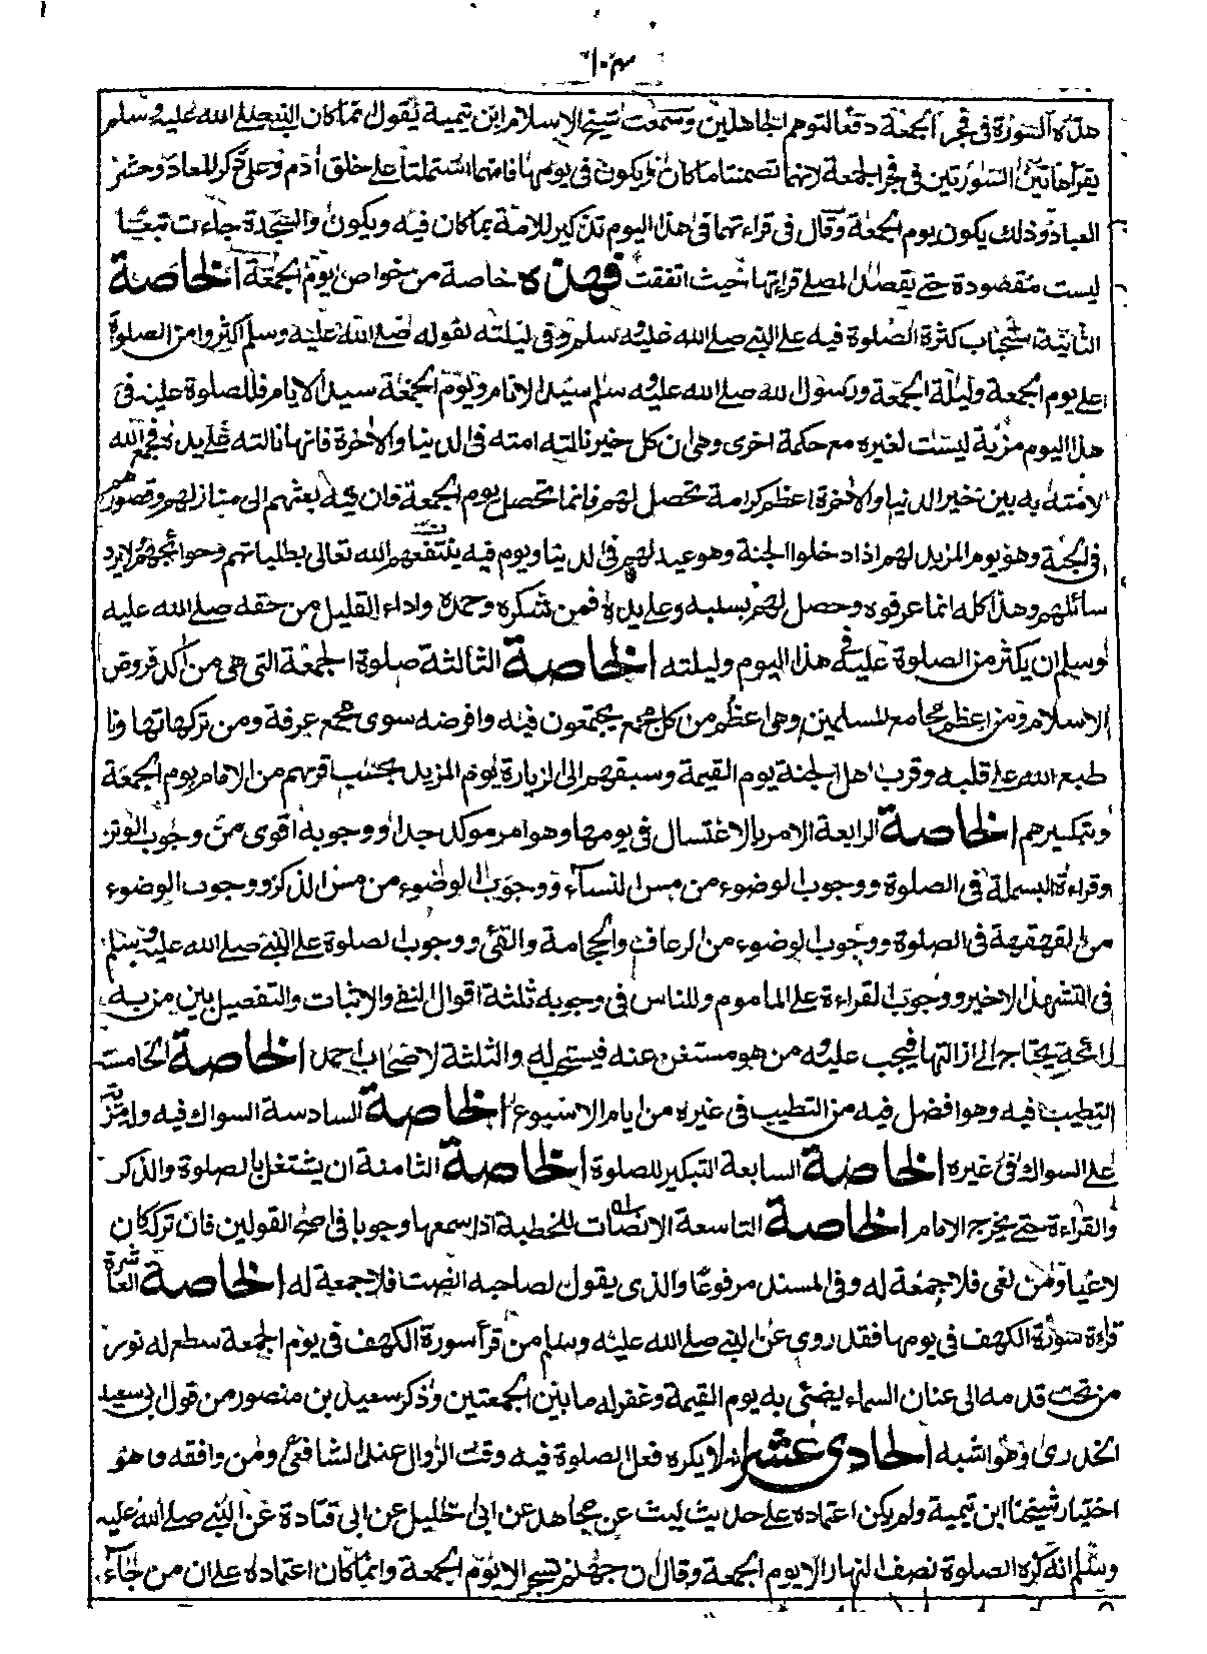 ١٠٣
هذه السورة فى فجر الجمعة دفعا لتوهم الجاهلين وسمعت شيخ الاسلام ابن تيمية يقول انما كان النبى صلى الله عليه وسلم
يقرأ هاتين السورتين فى فجر الجمعة لانهما تضمنتا ما كان ويكون فى يومها فانهما اشتملتا على خلق أدم وعلى ذكر المعاد وحشر
العباد وذلك يكون يوم الجمعة وقال فى قراءتهما فى هذا اليوم تذكير للامة بما كان فيه ويكون والسجدة جاءت تبعا
ليست مقصودة حتى يقصد المصلى قراءتها حيث اتفقت فهذه خاصة من خواص يوم الجمعة الخاصة
الثانية استحباب كثرة الصلوة فيه على النبى صلى الله عليه وسلم وفى ليلته لقوله صلى الله عليه وسلم اكثروا من الصلوة
على يوم الجمعة وليلة الجمعة ورسول الله صلى الله عليه وسلم سيد الانام ويوم الجمعة سيد الايام فللصلوة عليه فى
هذا اليوم مزية ليست لغيره مع حكمة اخرى وهى ان كل خير نالته امته فى الدنيا والاخرة فانها نالته على يده فجمع الله
لامته به بين خير الدنيا والاخرة اعظم كرامة تحصل لهم فانما تحصل يوم الجمعة فان فيه بعثهم الى منازلهم وقصورهم
فى الجنة وهو يوم المزيد لهم اذا دخلوا الجنة وهو عيد لهم فى الدنيا ويوم فيه ينتفعهم الله تعالى بطلباتهم وحوائجهم لا يرد
سائلهم وهذا كله انما عرفوه وحصل لهم بسببه وعلى يده فمن شكره وحمده واداء القليل من حقه صلى الله عليه
وسلم ان يكثر من الصلوة عليه فى هذا اليوم وليلته الخاصة الثالثة صلوة الجمعة التى هى من أكد فروض
الاسلام ومن اعظم مجامع المسلمين وهى اعظم من كل مجمع يجتمعون فيه وافرضه سوى مجمع عرفة ومن تركها تهاونا
طبع الله على قلبه وقرب اهل الجنة يوم القيمة وسبقهم الى الزيارة يوم المزيد بحسب قربهم من الامام يوم الجمعة
وتبكيرهم الخاصة الرابعة الامر بالاغتسال فى يومها وهو امر موكد جدا ووجوبه اقوى من وجوب الوتر
وقراءة البسملة فى الصلوة ووجوب الوضوء من مس النساء ووجوب الوضوء من مس الذكر ووجوب الوضوء
من القهقهة فى الصلوة ووجوب الوضوء من الرعاف والحجامة والقئ ووجوب الصلوة على النبى صلى الله عليه وسلم
فى التشهد الاخير ووجوب القراءة على الماموم وللناس فى وجوبه ثلثة اقوال النفى والاثبات والتفصيل بين من به
رائحة يحتاج الى ازالتها فيجب عليه ومن هو مستغن عنه فيستحب له والثلثة لاصحاب احمد الخاصة الخامسة
التطيب فيه وهو افضل فيه من التطيب فى غيره من ايام الاسبوع الخاصة السادسة السواك فيه وله مزية
على السواك فى غيره الخاصة السابعة التبكير للصلوة الخاصة الثامنة ان يشتغل بالصلوة والذكر
والقراءة حتى يخرج الامام الخاصة التاسعة الانصات للخطبة اذا سمعها وجوبا فى اصح القولين فان تركه كان
لاغيا ومن لغى فلا جمعة له وفى المسند مرفوعا والذى يقول لصاحبه انصت فلا جمعة له الخاصة العاشرة
قراءة سورة الكهف فى يومها فقد روى عن النبى صلى الله عليه وسلم من قرأ سورة الكهف فى يوم الجمعة سطع له نور
من تحت قدمه الى عنان السماء يضئ به يوم القيمة وغفر له ما بين الجمعتين وذكر سعيد بن منصور من قول ابى سعيد
الخدرى وهو اشبه الحادى عشر انه لا يكره فعل الصلوة فيه وقت الزوال عند الشافعى ومن وافقه وهو
اختيار شيخنا ابن تيمية ولم يكن اعتماده على حديث ليث عن مجاهد عن ابى الخليل عن ابى قتادة عن النبى صلى الله عليه
وسلم انه كره الصلوة نصف النهار الا يوم الجمعة وقال ان جهنم تسجر الا يوم الجمعة وانما كان اعتماده على ان من جاء